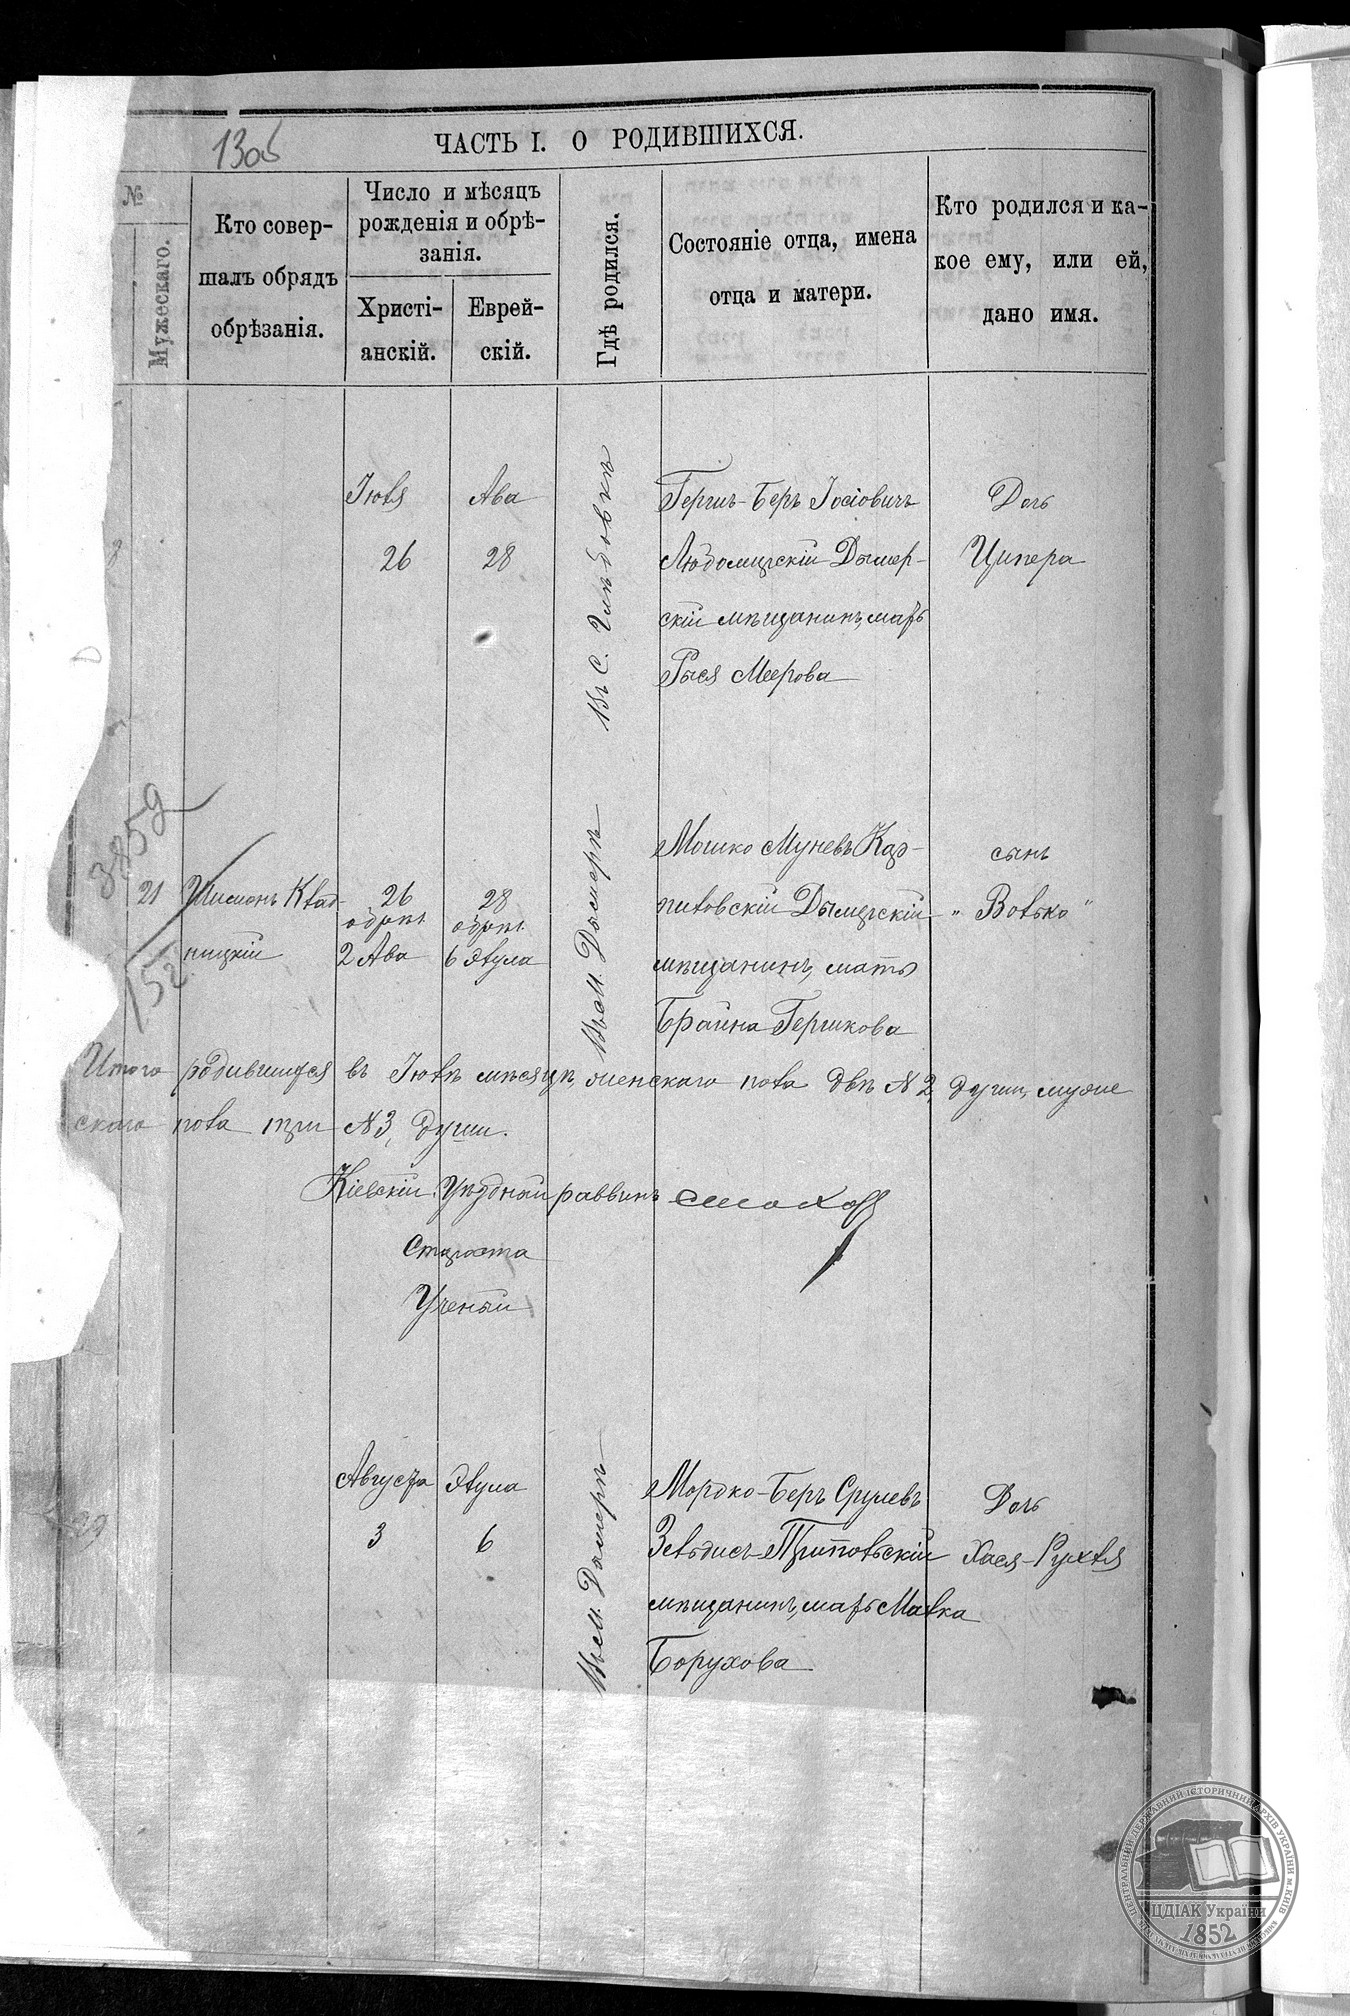 130б
ЧАСТЬ I. О РОДИВШИХСЯ.
№
Мужескаго.
Кто совер-
шалъ обрядъ
обрѣзанія.
Число и мѣсяцъ
рожденія и обрѣ-
занія.
Христі-
анскій.
Еврей-
скій.
Гдѣ родился.
Состояніе отца, имена
отца и матери.
Кто родился и ка-
кое ему, или ей,
дано имя.
Іюля
26
Ава
28
Въ С. Глѣбовкѣ
Гершъ-Беръ Іосіовичъ
Любомирскій Дымер-
скій мѣщанинъ, мать
Рыся Меерова
Дочь
Ципера
3859
152
21
Шимонъ Квад-
ницкій
26
обрѣз.
2 Ава
28
обрѣз.
6 Элула
Въ М. Дымерѣ
Мошко Муневъ Кар-
пиловскій Дымерскій
мѣщанинъ, мать
Брайна Гершкова
сынъ
"Волько"
Итого родившихся въ Іюлѣ мѣсяцѣ, женскаго пола двѣ N 2, души, муже
скаго пола три N 3, души.
Кіевскій Уѣздный раввинъ
Староста
Ученый
29
Августа
3
Элула
6
Въ М. Дымерѣ
Мордко-Беръ Срулевъ
Зельдисъ-Трипольскій
мѣщанинъ, мать Малка
Борухова
Дочь
Хася-Рухля
ЦЕНТРАЛЬНИЙ ДЕРЖАВНИЙ ІСТОРИЧНИЙ АРХІВ УКРАЇНИ м. КИЇВ
ЦДІАК України
1852